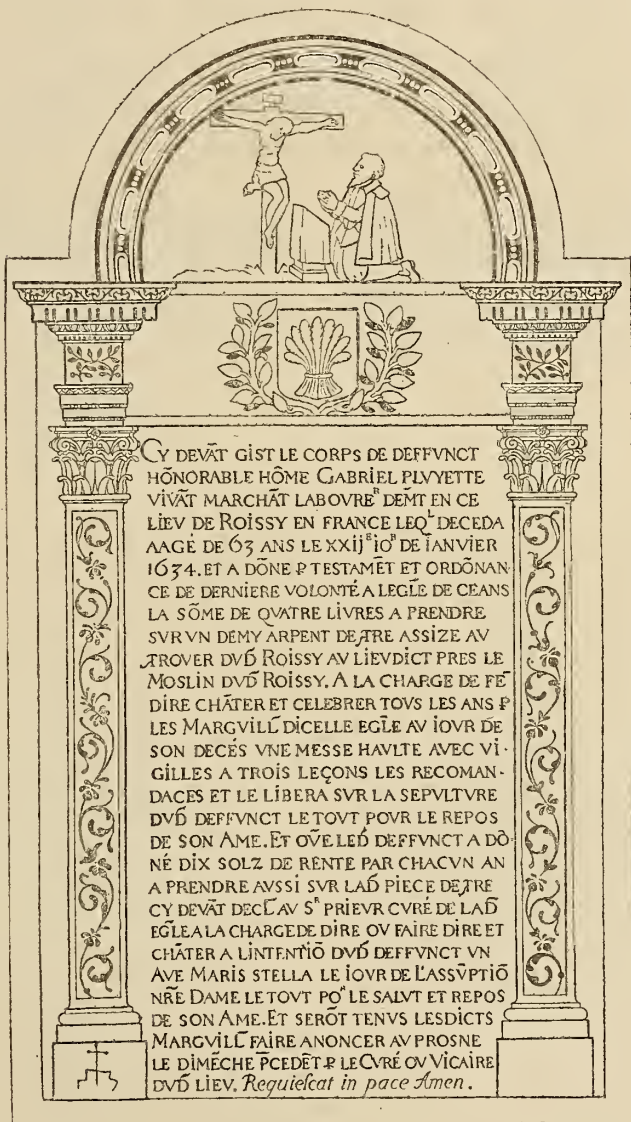 CY DEVĀT GIST LE CORPS DE DEFFVNCT
HŌNORABLE HŌME GABRIEL PLVYETTE
VIVĀT MARCHĀT LABOVREᴿ DEMT EN CE
LIEV DE ROISSY EN FRANCE LEQᴸ DECEDA
AAGÉ DE 63 ANS LE XXIJᴱ IOᴿ DE IANVIER
1634. ET A DŌNE P TESTAMĒT ET ORDŌNAN·
CE DE DERNIERE VOLONTÉ A LEGL̄E DE CEANS
LA SŌME DE QVATRE LIVRES A PRENDRE
SVR VN DEMY ARPENT DE TRE ASSIZE AV
TROVER DVD ROISSY AV LIEVDICT PRES LE
MOSLIN DVD ROISSY. A LA CHARGE DE FĒ
DIRE CHĀTER ET CELEBRER TOVS LES ANS P
LES MARGVILL DICELLE EGL̄E AV IOVR DE
SON DECÉS VNE MESSE HAVLTE AVEC VI·
GILLES A TROIS LEÇONS LES RECOMAN-
DACES ET LE LIBERA SVR LA SEPVLTVRE
DVD DEFFVNCT LE TOVT POVR LE REPOS
DE SON AME. ET OVE LED DEFFVNCT A DŌ-
NÉ DIX SOLZ DE RENTE PAR CHACVN AN
A PRENDRE AVSSI SVR LAD PIECE DE TRE
CY DEVĀT DECL AV Sᴿ PRIEVR CVRÉ DE LAD
EGL̄E A LA CHARGE DE DIRE OV FAIRE DIRE ET
CHĀTER A LINTENTIŌ DVD DEFFVNCT VN
AVE MARIS STELLA LE IOVR DE L'ASSVPTIŌ
NR̄E DAME LE TOVT POᴿ LE SALVT ET REPOS
DE SON AME. ET SERŌT TENVS LESDICTS
MARGVILL FAIRE ANONCER AV PROSNE
LE DIMĒCHE P̄CEDĒT P LE CVRÉ OV VICAIRE
DVD LIEV. Requiefcat in pace Amen.